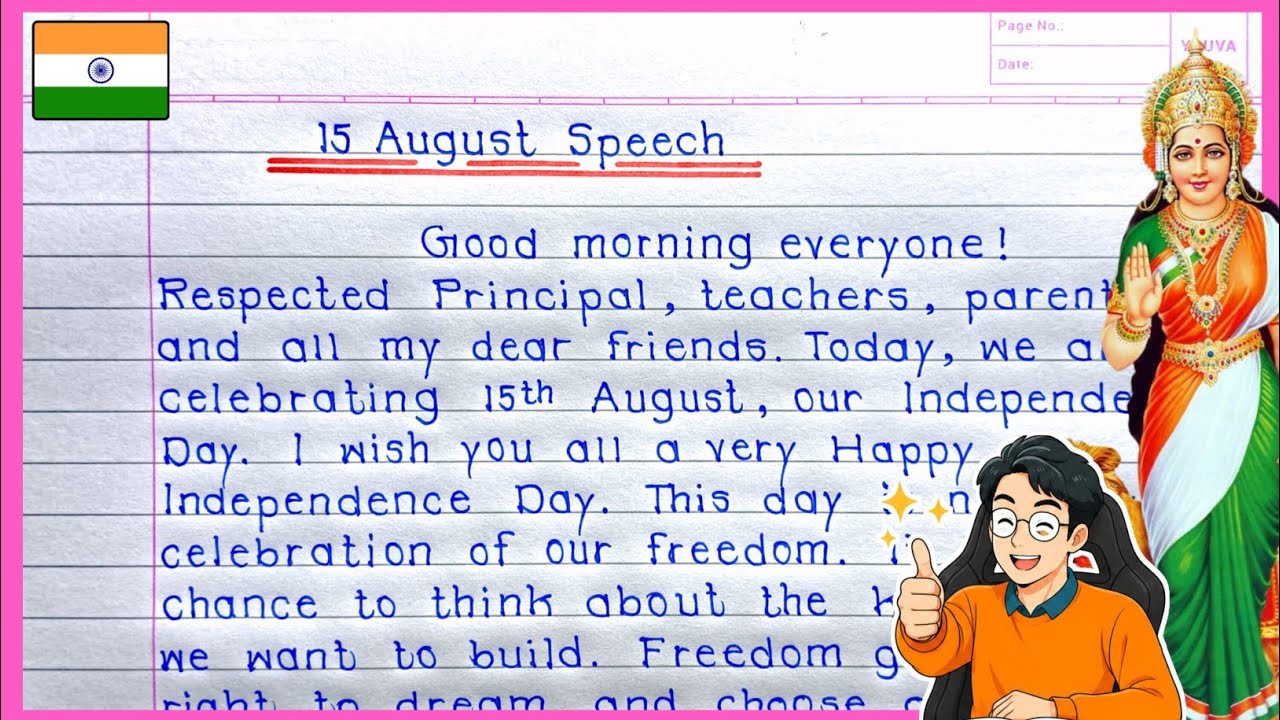 Page No.:
Date:
15 August Speech
Good morning everyone!
Respected Principal, teachers, parent
and all my dear friends. Today, we
celebrating 15th August, our Independe
Day. I wish you all a very Happy
Independence Day. This day
celebration of our freedom.
chance to think about the
we want to build. Freedom
right to dream and choose